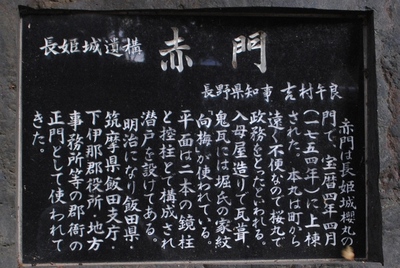 長姫城遺構
赤門
長野県知事 吉村午良
赤門は長姫城櫻丸の
門で、宝暦四年四月
(一七五四年)に上棟
された。本丸は町から
遠く不便なので桜丸で
政務をとったといわれる。
入母屋造りで瓦葺
鬼瓦には堀氏の家紋
「向梅」が使われている。
平面は二本の鏡柱
と控柱とで構成され
潜戸を設けてある。
明治になり飯田県・
筑摩県飯田支庁・
下伊那郡役所・地方
事務所等の郡衙の
正門として使われて
きた。